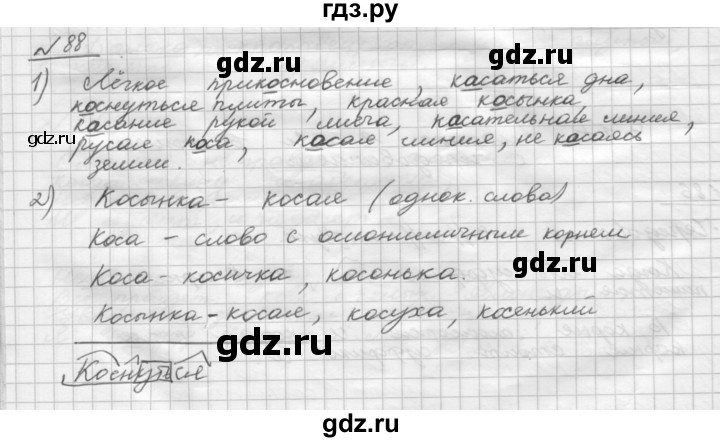 гдз.ру
№ 88
1) Лёгкое прикосновение, касаться дна,
коснуться плиты, красная косынка,
касание рукой мяча, касательная линия,
gdz.ru
русая коса, косая линия, не касаясь
gdz.ru
земли.
2) Косынка – косая (однок. слова)
Коса – слово с омонимичным корнем
Коса – косичка, косонька.
Косынка – косая, косуха, косенький
gdz.ru
gdz.ru
Коснуться
gdz.ru
gdz.ru
gdz.ru